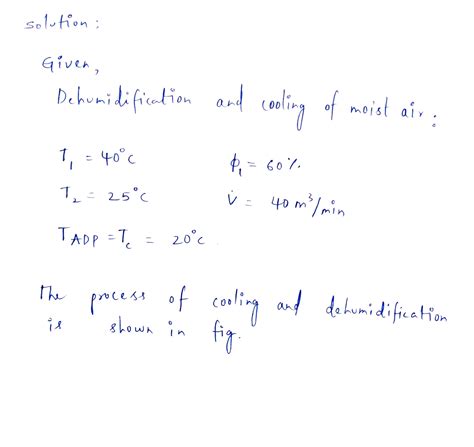 solution :
Given,
Dehumidification and cooling of moist air :
T₁ = 40°C ϕ₁ = 60%
T₂ = 25°C V̇ = 40 m³/min
T ADP = T꜀ = 20°C
The process of cooling and dehumidification
is shown in fig.